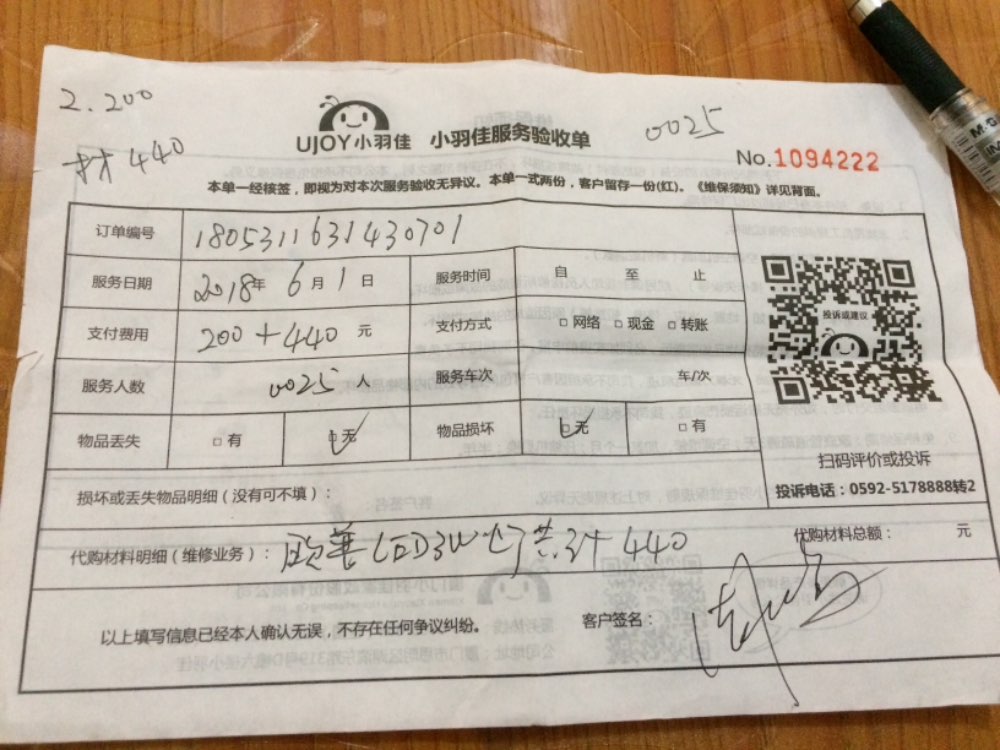 2.200
材440
UJOY小羽佳 小羽佳服务验收单
0025
No.1094222
本单一经核签，即视为对本次服务验收无异议。本单一式两份，客户留存一份(红)。《维保须知》详见背面。
订单编号 1805311631430701
服务日期 2018年 6月1日 服务时间 自 至 止
投诉或建议
支付费用 200+440 元 支付方式 □网络 □现金 □转账
服务人数 0025 人 服务车次 车/次
物品丢失 □有 □无 物品损坏 □无 □有
扫码评价或投诉
损坏或丢失物品明细（没有可不填）：
投诉电话：0592-5178888转2
代购材料明细（维修业务）： LED3W灯共 440
代购材料总额： 元
以上填写信息已经本人确认无误，不存在任何争议纠纷。 客户签名：